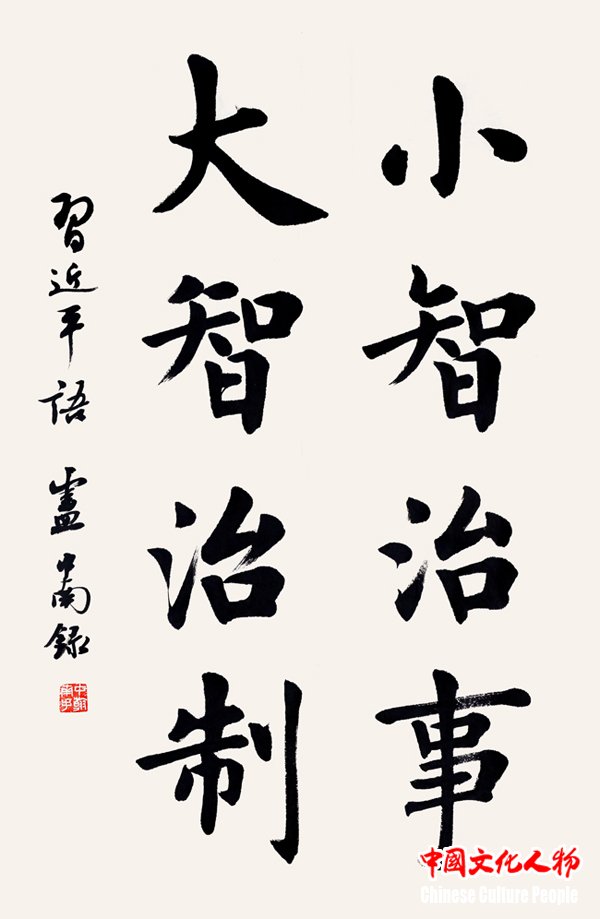 小智治事
大智治制
習近平語 盧中南録
中國文化人物
Chinese Culture People